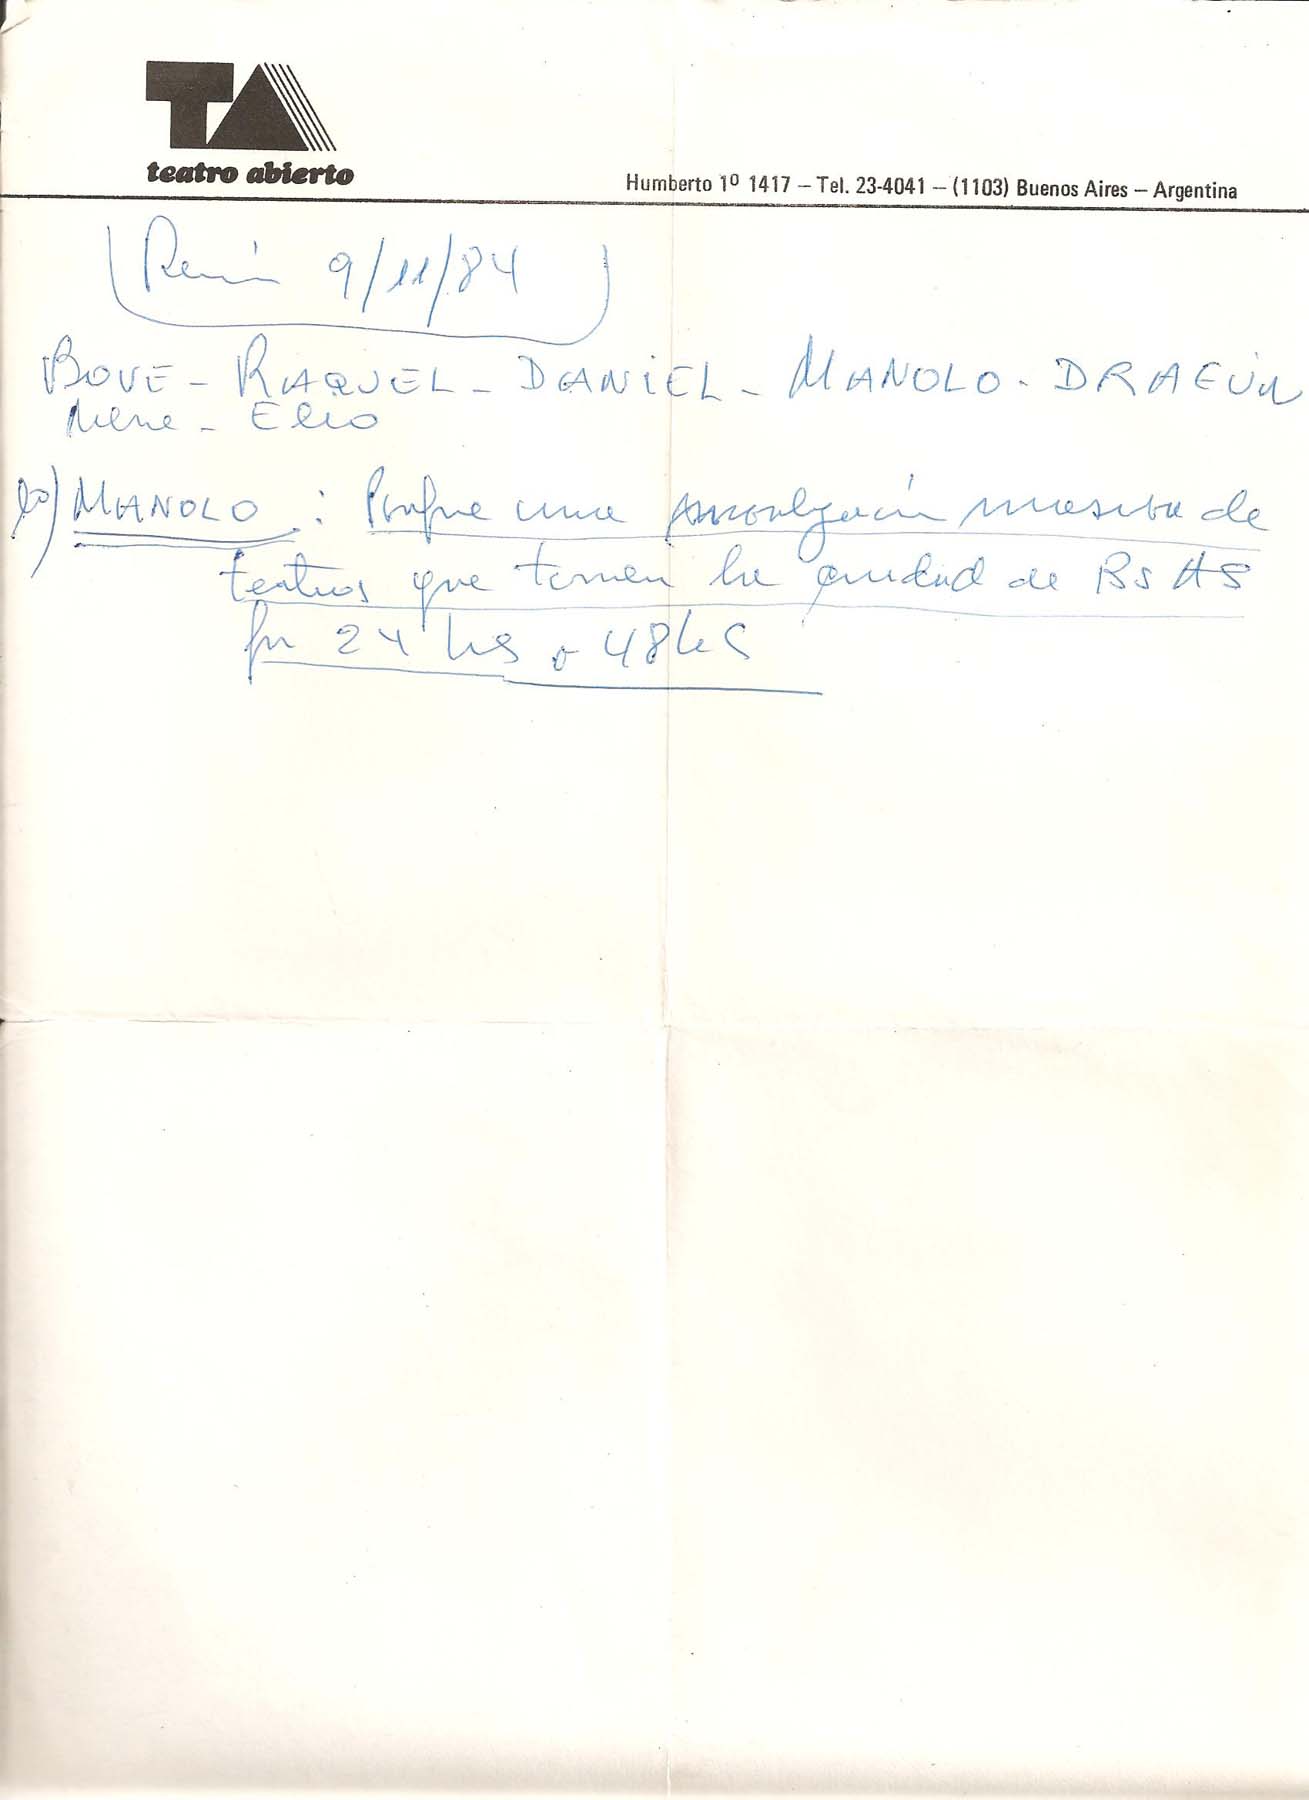 TA
teatro abierto
Humberto 1º 1417 – Tel. 23-4041 – (1103) Buenos Aires – Argentina
9/11/84
BOVE - RAQUEL - DANIEL - MANOLO - DRAGÚN
Nene - Elio
MANOLO : una masiva de
teatros que tomen la ciudad de Bs AS
por 24 hs o 48 hs